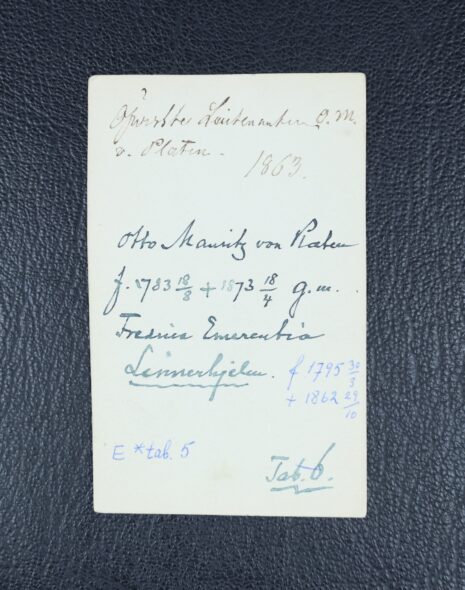 Öfverste Lieutenanten O. M.
v. Platen.
1863.
Otto Mauritz von Platen
f. 1783 18/8 + 1873 18/4 g.m.
Fredrica Emerentia
Linnerhjelm. f 1795 30/3
+ 1862 29/10
E * tab. 5
Tab. 6.